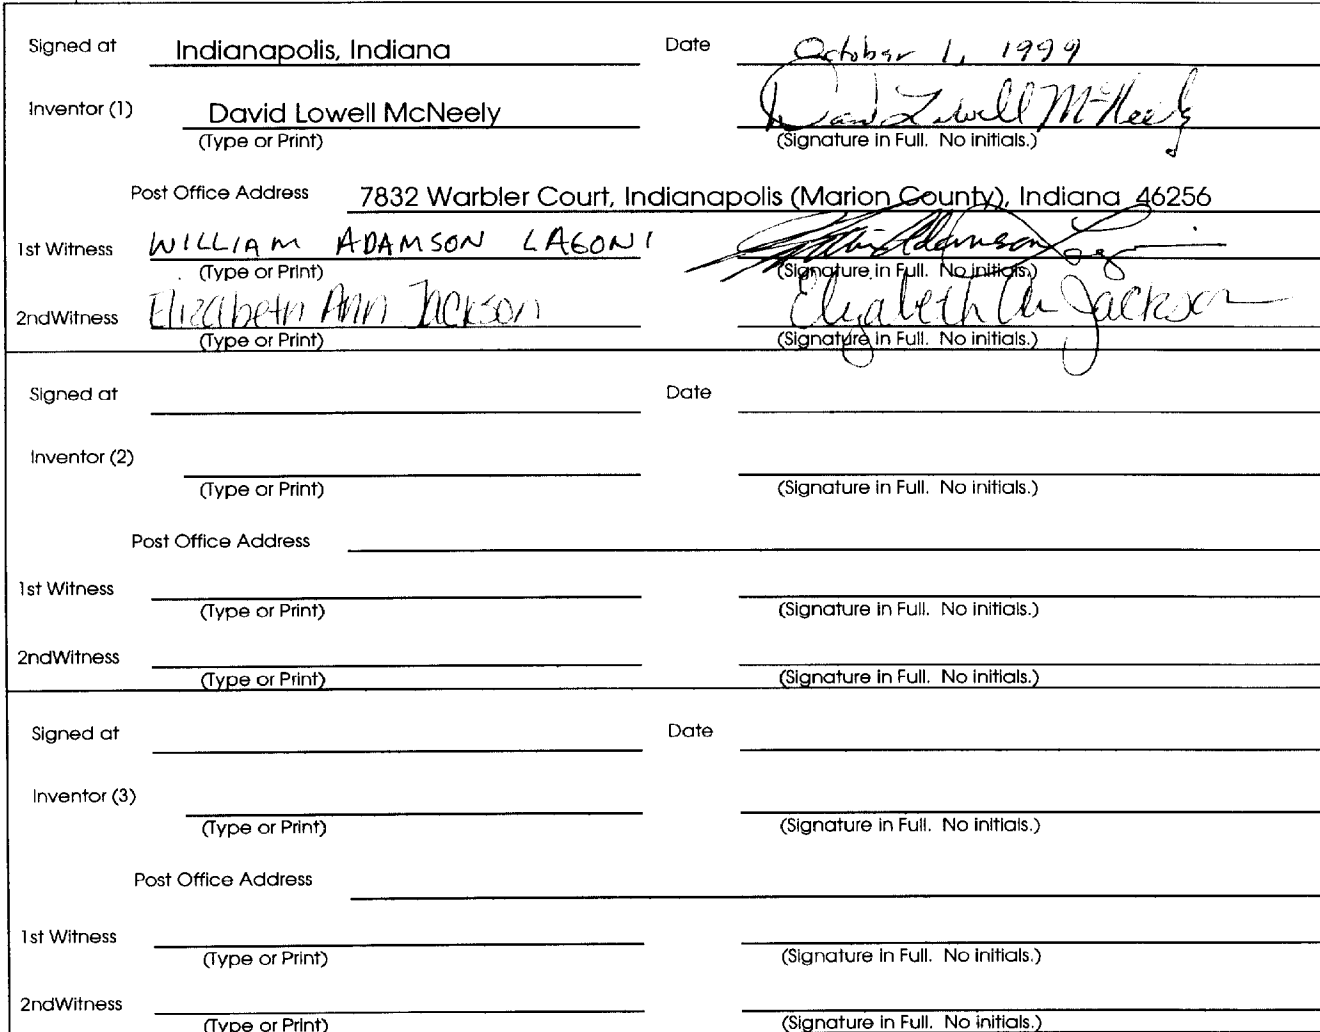 Signed at Indianapolis, Indiana Date October 1, 1999
Inventor (1) David Lowell McNeely David Lowell McNeely
(Type or Print) (Signature in Full. No initials.)
Post Office Address 7832 Warbler Court, Indianapolis (Marion County), Indiana 46256
1st Witness WILLIAM ADAMSON LAGONI William Adamson Lagoni
(Type or Print) (Signature in Full. No initials.)
2ndWitness Elizabeth Ann Jackson Elizabeth Ann Jackson
(Type or Print) (Signature in Full. No initials.)
Signed at Date
Inventor (2)
(Type or Print) (Signature in Full. No initials.)
Post Office Address
1st Witness
(Type or Print) (Signature in Full. No initials.)
2ndWitness
(Type or Print) (Signature in Full. No initials.)
Signed at Date
Inventor (3)
(Type or Print) (Signature in Full. No initials.)
Post Office Address
1st Witness
(Type or Print) (Signature in Full. No initials.)
2ndWitness
(Type or Print) (Signature in Full. No initials.)